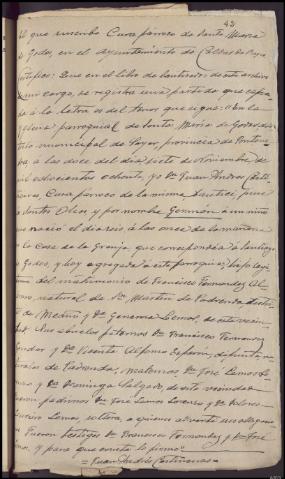 43
el que suscribe Cura párroco de Santa María
de Godos, en el Ayuntamiento de Caldas de Reyes
Certifico: Que en el libro de bautizados de este archivo
a mi cargo, se registra una partida que copia-
da á la letra es del tenor que sigue: En la
Iglesia parroquial de Santa María de Godos, dis-
trito municipal de Sayar, provincia de Ponteve-
dra á las doce del dia siete de Noviembre de
mil ochocientos ochenta, yo Dn Juan Andrés
Cura párroco de la misma, bauticé, puse
los Santos Oleos, y por nombre Germán á un niño
que nació el dia seis á las once de la mañana
en la Casa de la Granja, que correspondía á Santiago
de Godos, y hoy agregada á esta parroquia; hijo legí-
timo del matrimonio de Francisco Fernandez Al-
natural de Sn Martín de Padrenda
de Meaño, y Dª Generosa Lemos, de esta vecin-
dad. Sus abuelos paternos Dn Francisco Fernandez
y Dª Vicenta Alfonso difuntos
de Padrenda; maternos Dn José Lemos
y Dª Dominga Salgado, de esta vecindad
Fueron padrinos Dn José Lemos Lorenzo y Dª Dolores
Lemos, soltera, á quienes advertí sus obligacio-
Fueron testigos Dn Francisco Fernandez y Dn José
y para que conste lo firmo =
= Juan Andrés